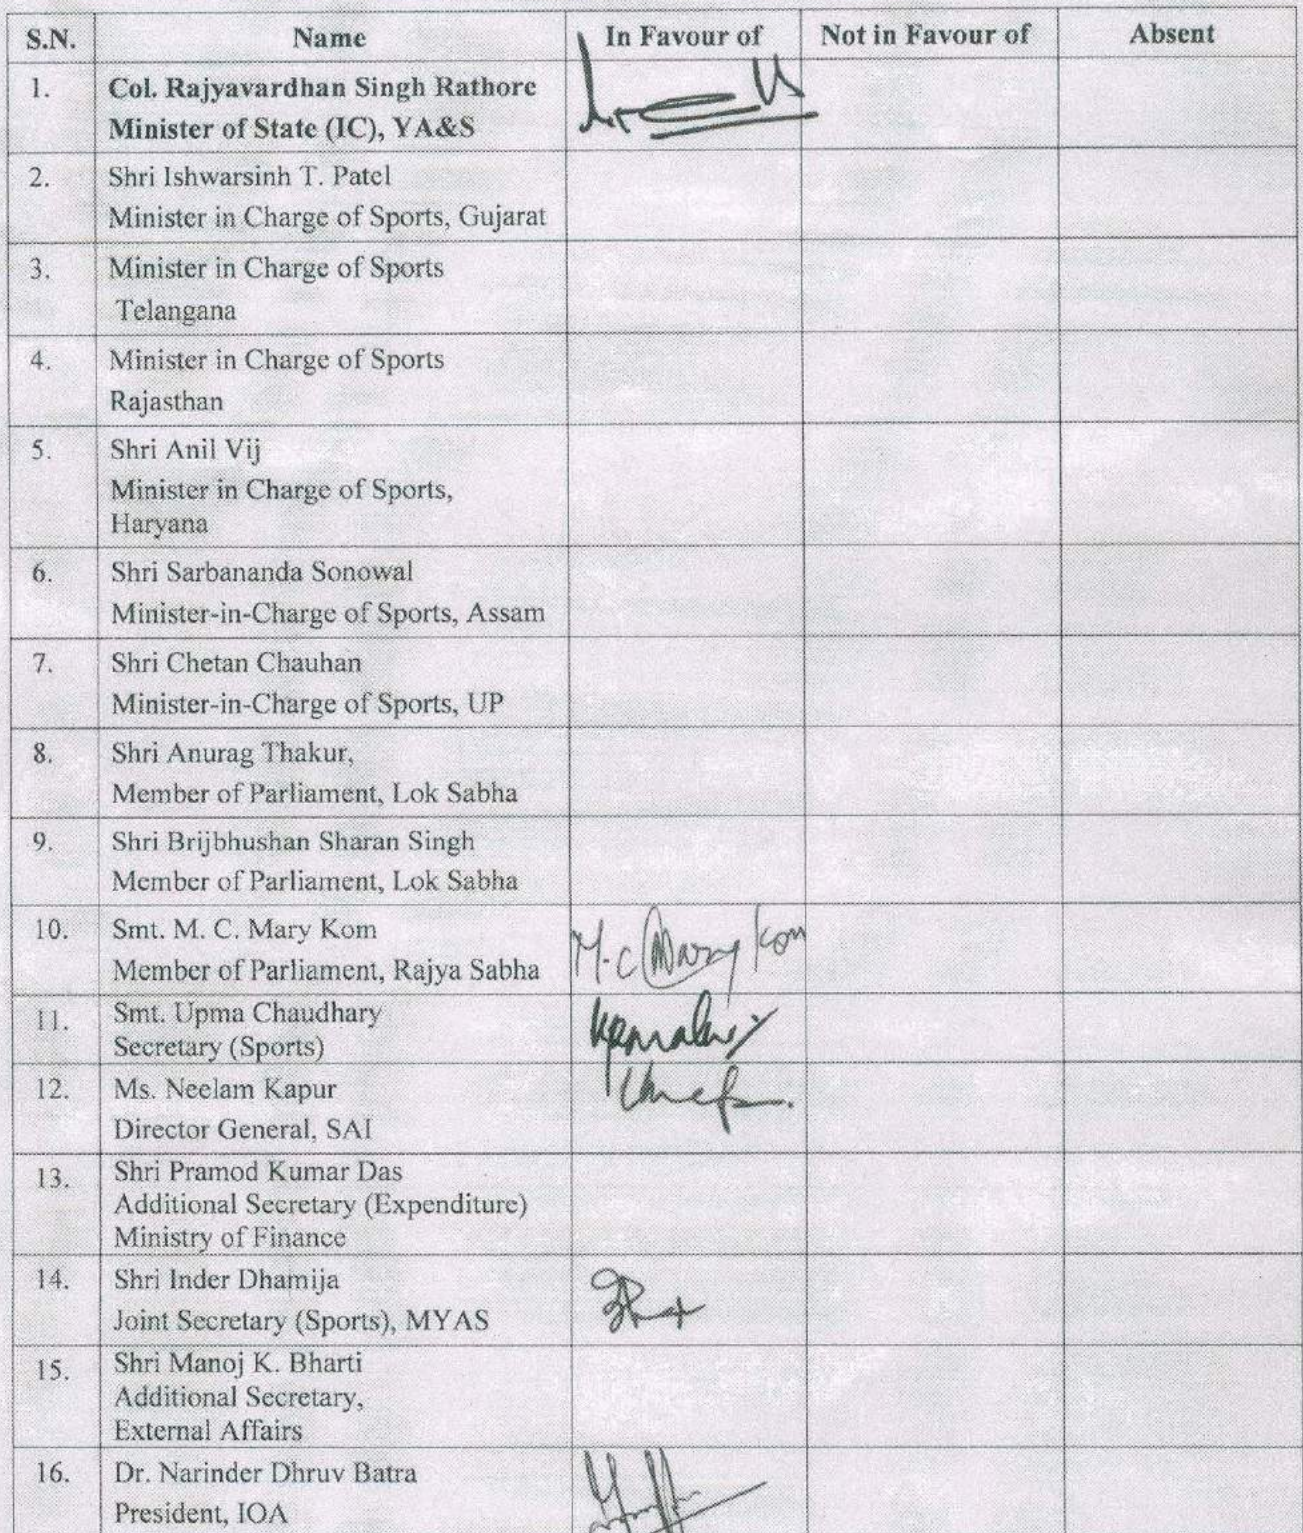 S.N. Name In Favour of Not in Favour of Absent
1. Col. Rajyavardhan Singh Rathore
Minister of State (IC), YA&S
2. Shri Ishwarsinh T. Patel
Minister in Charge of Sports, Gujarat
3. Minister in Charge of Sports
Telangana
4. Minister in Charge of Sports
Rajasthan
5. Shri Anil Vij
Minister in Charge of Sports,
Haryana
6. Shri Sarbananda Sonowal
Minister-in-Charge of Sports, Assam
7. Shri Chetan Chauhan
Minister-in-Charge of Sports, UP
8. Shri Anurag Thakur,
Member of Parliament, Lok Sabha
9. Shri Brijbhushan Sharan Singh
Member of Parliament, Lok Sabha
10. Smt. M. C. Mary Kom M.C Mary Kom
Member of Parliament, Rajya Sabha
11. Smt. Upma Chaudhary
Secretary (Sports)
12. Ms. Neelam Kapur
Director General, SAI
13. Shri Pramod Kumar Das
Additional Secretary (Expenditure)
Ministry of Finance
14. Shri Inder Dhamija
Joint Secretary (Sports), MYAS
15. Shri Manoj K. Bharti
Additional Secretary,
External Affairs
16. Dr. Narinder Dhruv Batra
President, IOA